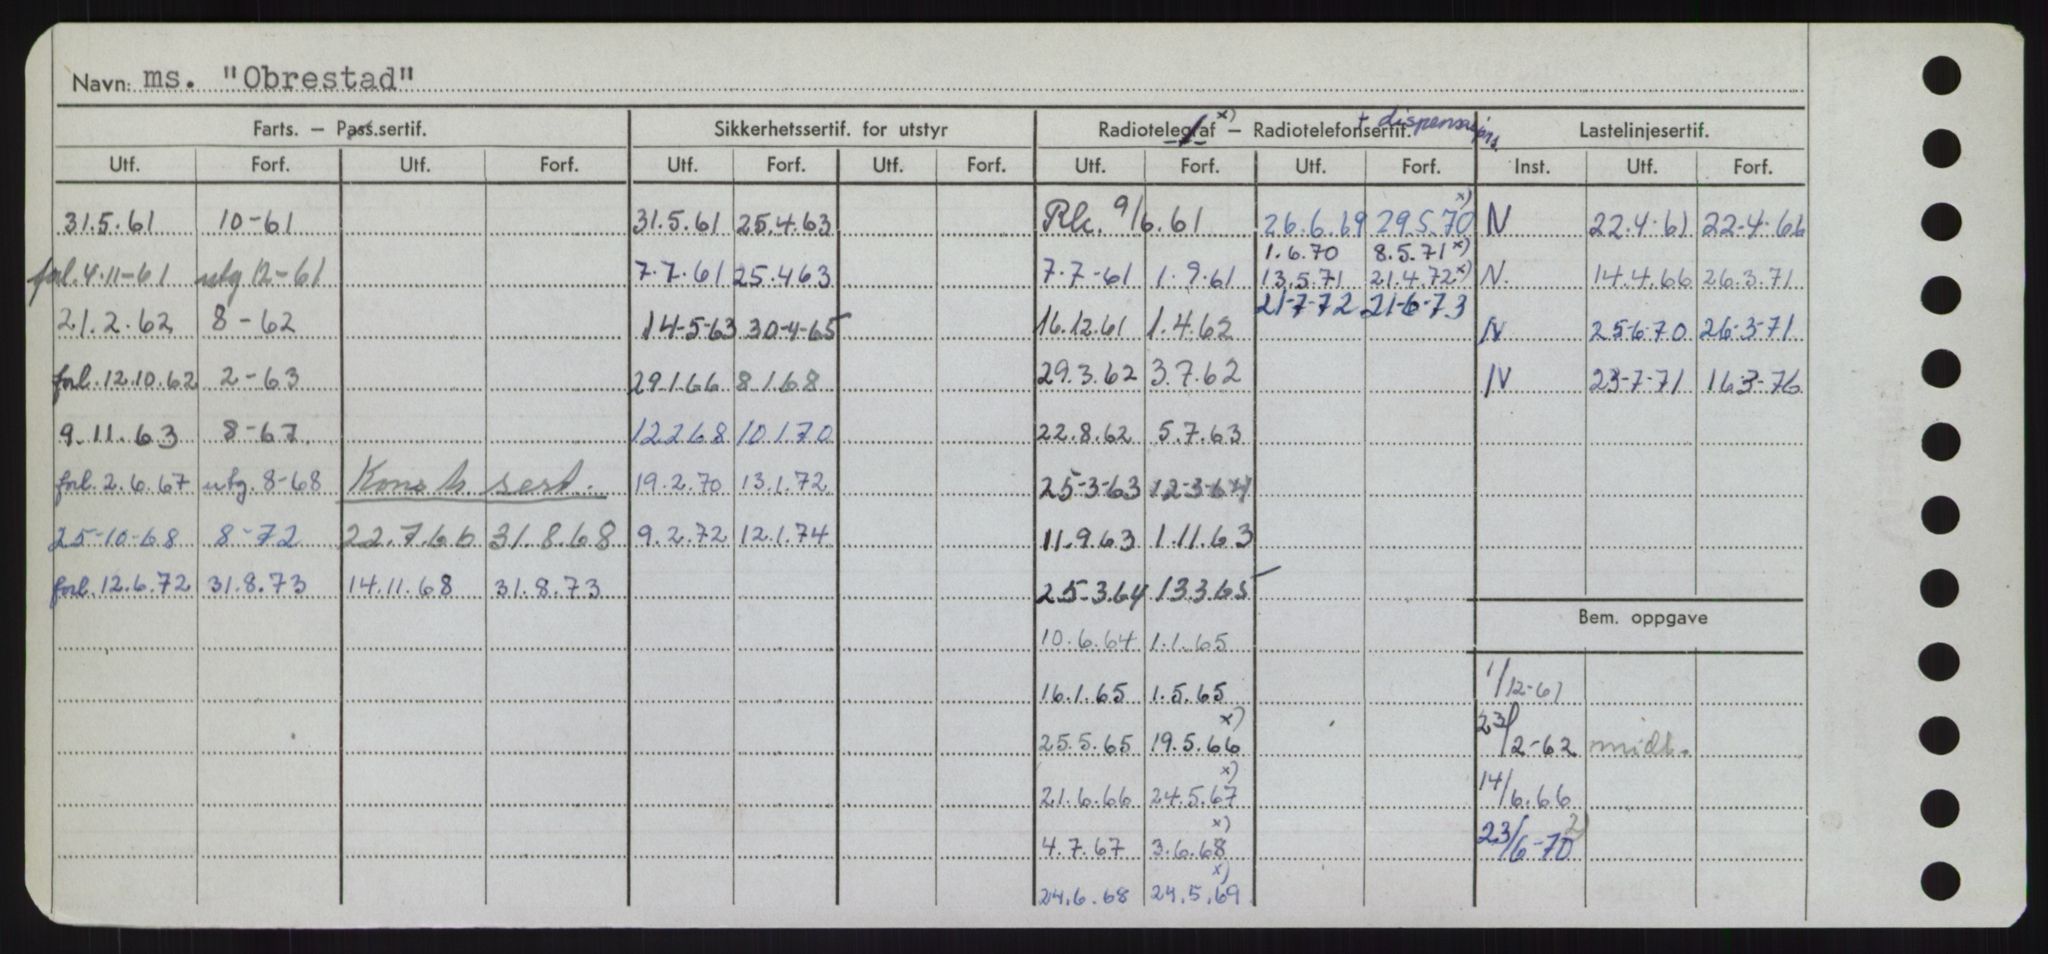 Navn: ms. "Obrestad"
Farts. – Pass.sertif. Sikkerhetssertif. for utstyr Radiotelegraf x) – Radiotelefonsertif. + dispensasjons. Lastelinjesertif.
Utf. Forf. Utf. Forf. Utf. Forf. Utf. Forf. Utf. Forf. Utf. Forf. Inst. Utf. Forf.
31.5.61 10-61 31.5.61 25.4.63 Rk. 9/6.61 26.6.69 29.5.70 x) N 22.4.61 22.4.66
1.6.70 8.5.71 x)
forl. 4.11-61 utg 12-61 7.7.61 25.4.63 7.7-61 1.9.61 13.5.71 21.4.72 x) N. 14.4.66 26.3.71
21-7-72 21-6-73
21.2.62 8-62 14-5-63 30-4-65 16.12.61 1.4.62 N 25-6-70 26-3-71
forl. 12.10.62 2-63 29.1.66 8.1.68 29.3.62 3.7.62 N 23-7-71 16.3-76
9.11.63 8-67 12.2.68 10.1.70 22.8.62 5.7.63
forl. 2.6.67 utg. 8-68 Konstr. sert. 19.2.70 13.1.72 25-3-63 12-3-64
25-10-68 8-72 22.7.66 31.8.68 9.2.72 12.1.74 11.9.63 1.11.63
forl. 12.6.72 31.8.73 14.11.68 31.8.73 25-3.64 13.3.65
10.6.64 1.1.65 Bem. oppgave
16.1.65 1.5.65 1/12-61
25.5.65 19.5.66 x) 23/2-62 midl.
21.6.66 24.5.67 x) 14/6.66
4.7.67 3.6.68 x) 23/6-70 2)
24.6.68 24.5.69 x)